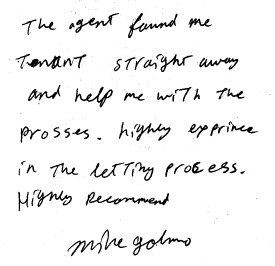 The agent found me
Tenant straight away
and help me with the
prosses. highly exprince
in the letting process.
Highly Recommend
mike